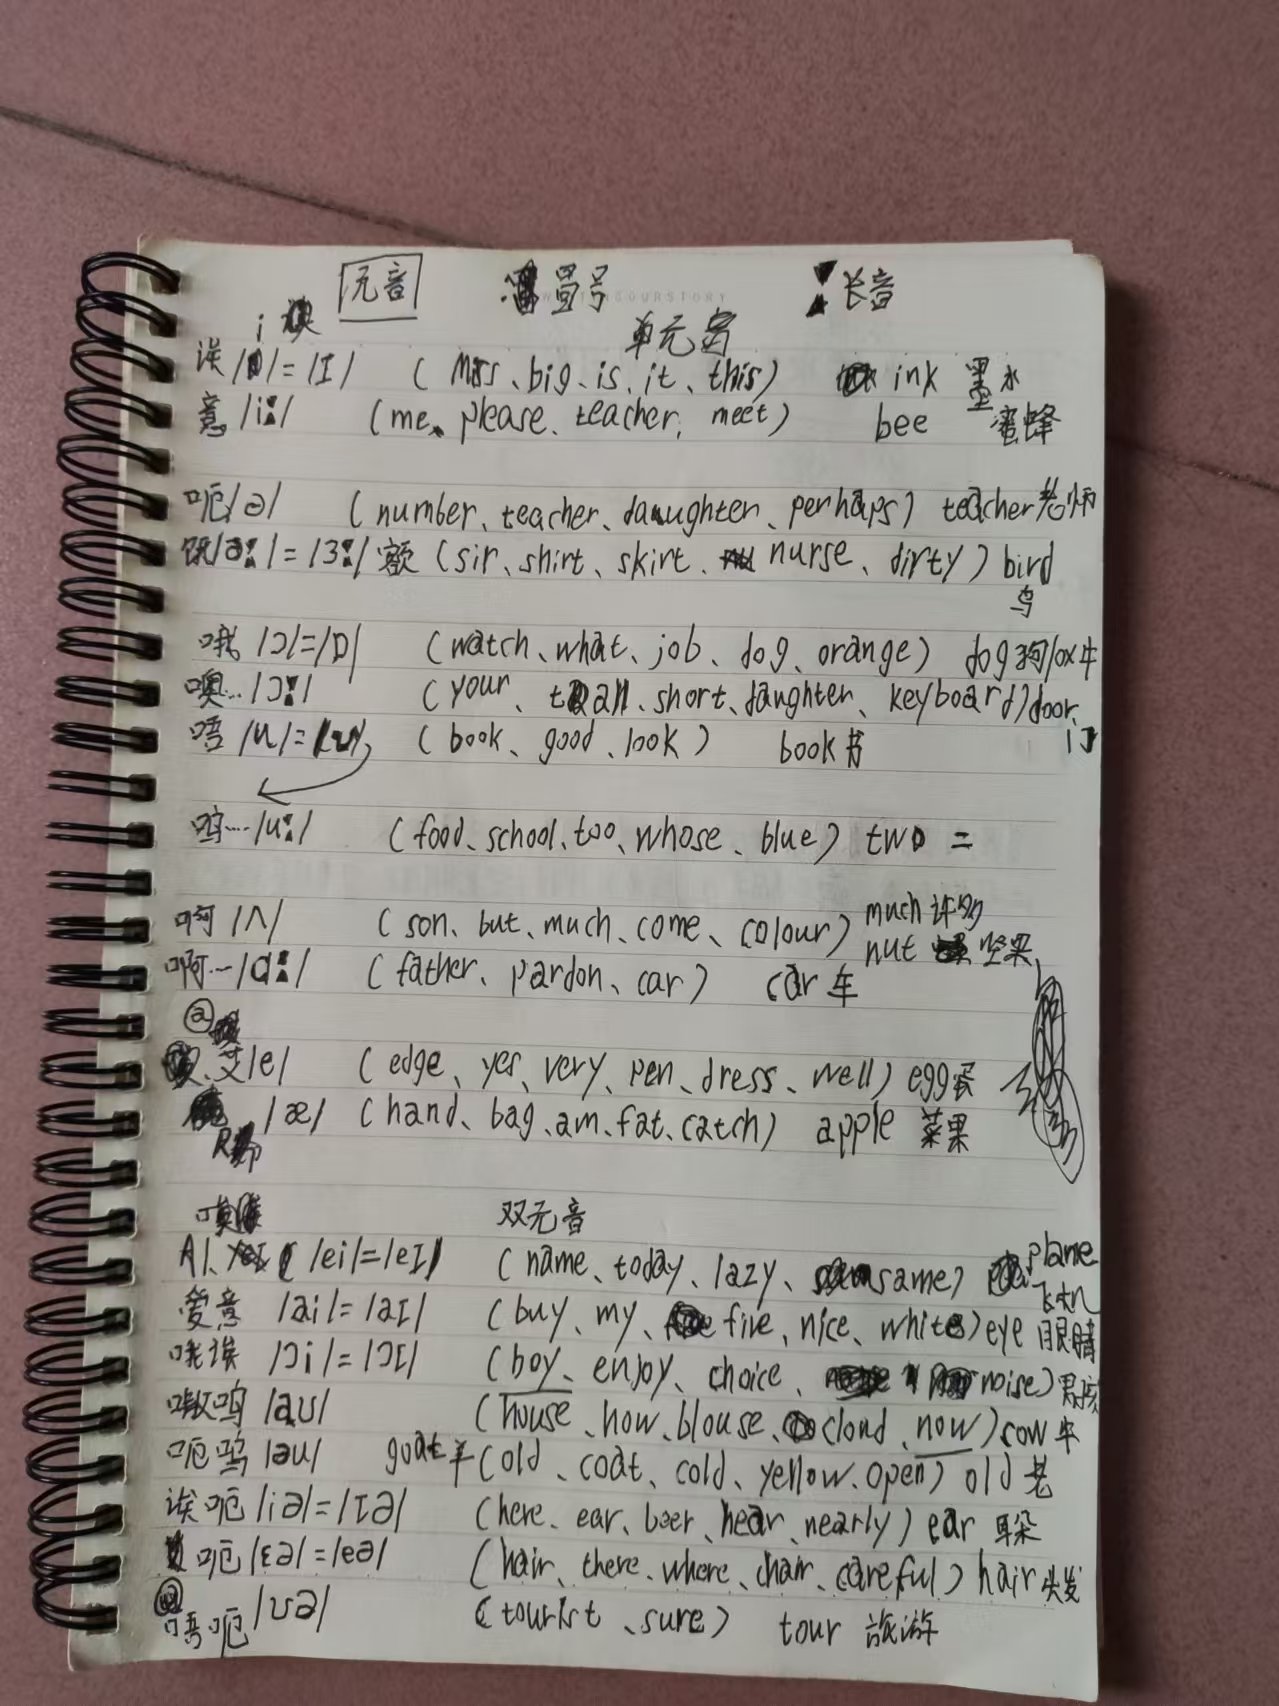 元音 冒号 : 长音
单元音
i
诶 /i/=/I/ (Miss、big、is、it、this) ink 墨水
意 /i:/ (me、please、teacher、meet) bee 蜜蜂
呃/ə/ (number、teacher、daughter、perhaps) teacher老师
/ə:/=/3:/ 额 (sir、shirt、skirt、nurse、dirty) bird
鸟
哦 /ɔ/=/ɒ/ (watch、what、job、dog、orange) dog狗/ox牛
噢… /ɔ:/ (your、tall、short、daughter、keyboard)door
门
唔 /u/=/ʊ/ (book、good、look) book书
呜…/u:/ (food、school、too、whose、blue) two 二
啊 /ʌ/ (son、but、much、come、colour) much 许多
nut 坚果
啊…/ɑ:/ (father、pardon、car) car 车
a
艾/e/ (edge、yes、very、pen、dress、well) egg蛋
/æ/ (hand、bag、am、fat、catch) apple 苹果
双元音
AI /ei/=/eI/ (name、today、lazy、same) plane
飞机
爱意 /ai/=/aI/ (buy、my、five、nice、white)eye 眼睛
哦诶 /ɔi/=/ɔI/ (boy、enjoy、choice、noise)男孩
嗷呜 /aʊ/ (house、how、blouse、cloud、now)cow 牛
呃呜 /əu/ goat羊(old、coat、cold、yellow、open) old 老
诶呃 /iə/=/Iə/ (here、ear、beer、hear、nearly) ear 耳朵
呃 /ɛə/=/eə/ (hair、there、where、chair、careful) hair 头发
唔呃 /ʊə/ (tourist、sure) tour 旅游